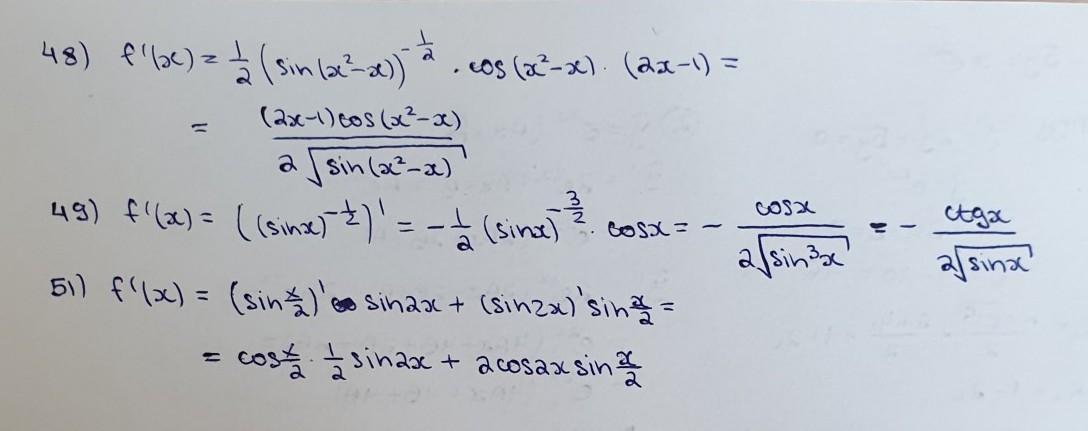 48) f'(x) = 1/2 (sin(x²-x))^(-1/2) · cos(x²-x) · (2x-1) =
= (2x-1)cos(x²-x) / 2√sin(x²-x)
49) f'(x) = ((sinx)^(-1/2))' = -1/2 (sinx)^(-3/2) · cosx = - cosx / 2√sin³x = - ctgx / 2√sinx
51) f'(x) = (sin x/2)' sin2x + (sin2x)' sin x/2 =
= cos x/2 · 1/2 sin2x + 2cos2x sin x/2